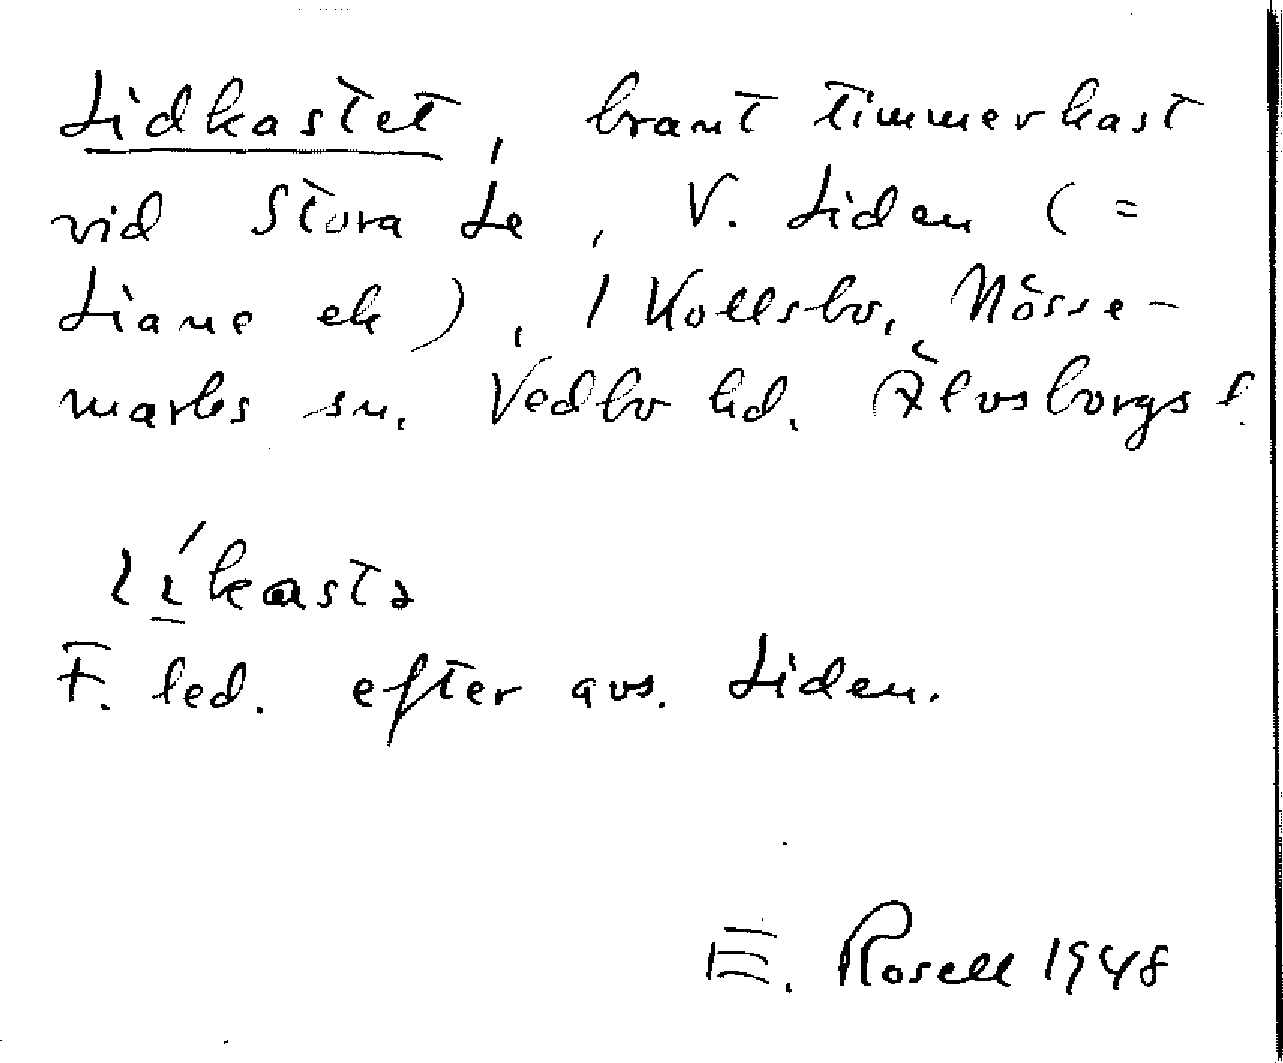 Lidkastet, brant timmerkast
vid Stora Le, V. Liden (=
Liane ek), / Kollsbo, Nösse-
marks sn. Vedbo hd. Älvsborgs l.
lìkastə
F. led. efter avs. Liden.
E. Rosell 1948